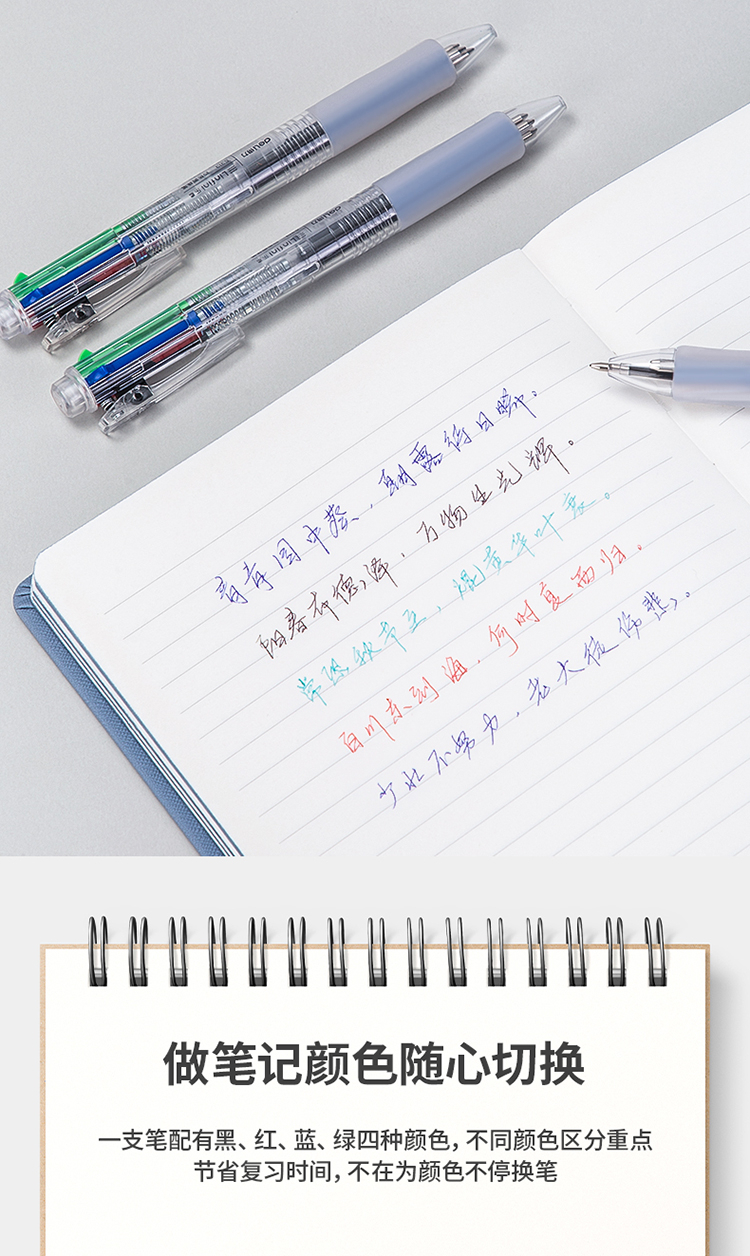 delixin
青青园中葵,朝露待日晞。
阳春布德泽,万物生光辉。
常恐秋节至,焜黄华叶衰。
百川东到海,何时复西归。
少壮不努力,老大徒伤悲。
做笔记颜色随心切换
一支笔配有黑、红、蓝、绿四种颜色,不同颜色区分重点
节省复习时间,不在为颜色不停换笔